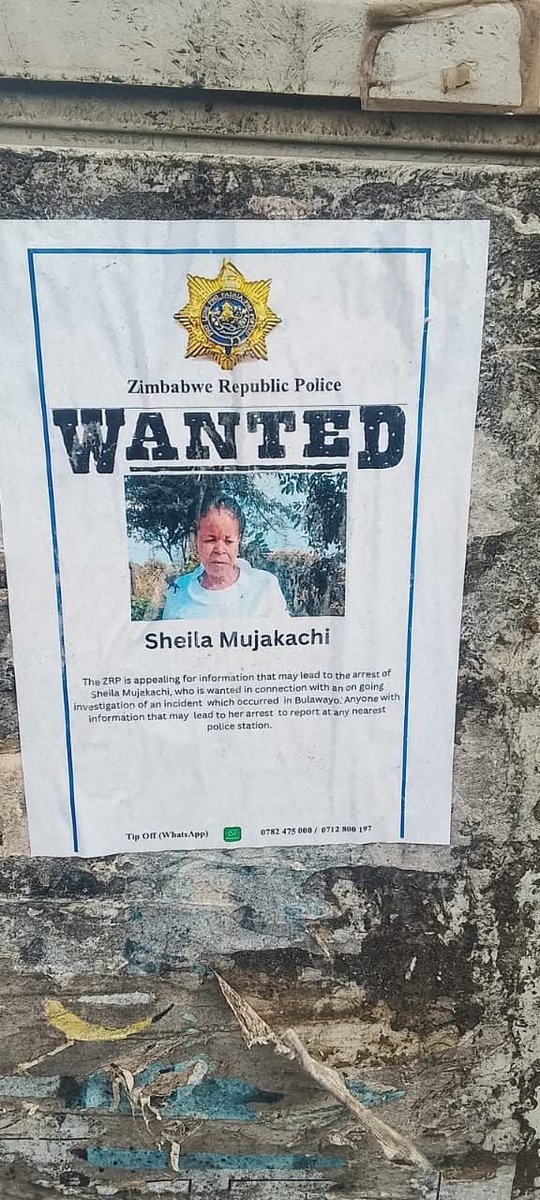 Zimbabwe Republic Police
WANTED
Sheila Mujakachi
The ZRP is appealing for information that may lead to the arrest of
Sheila Mujakachi, who is wanted in connection with an on going
investigation of an incident which occurred in Bulawayo. Anyone with
information that may lead to her arrest to report at any nearest
police station.
Tip Off (WhatsApp) 0782 475 000 / 0712 800 197